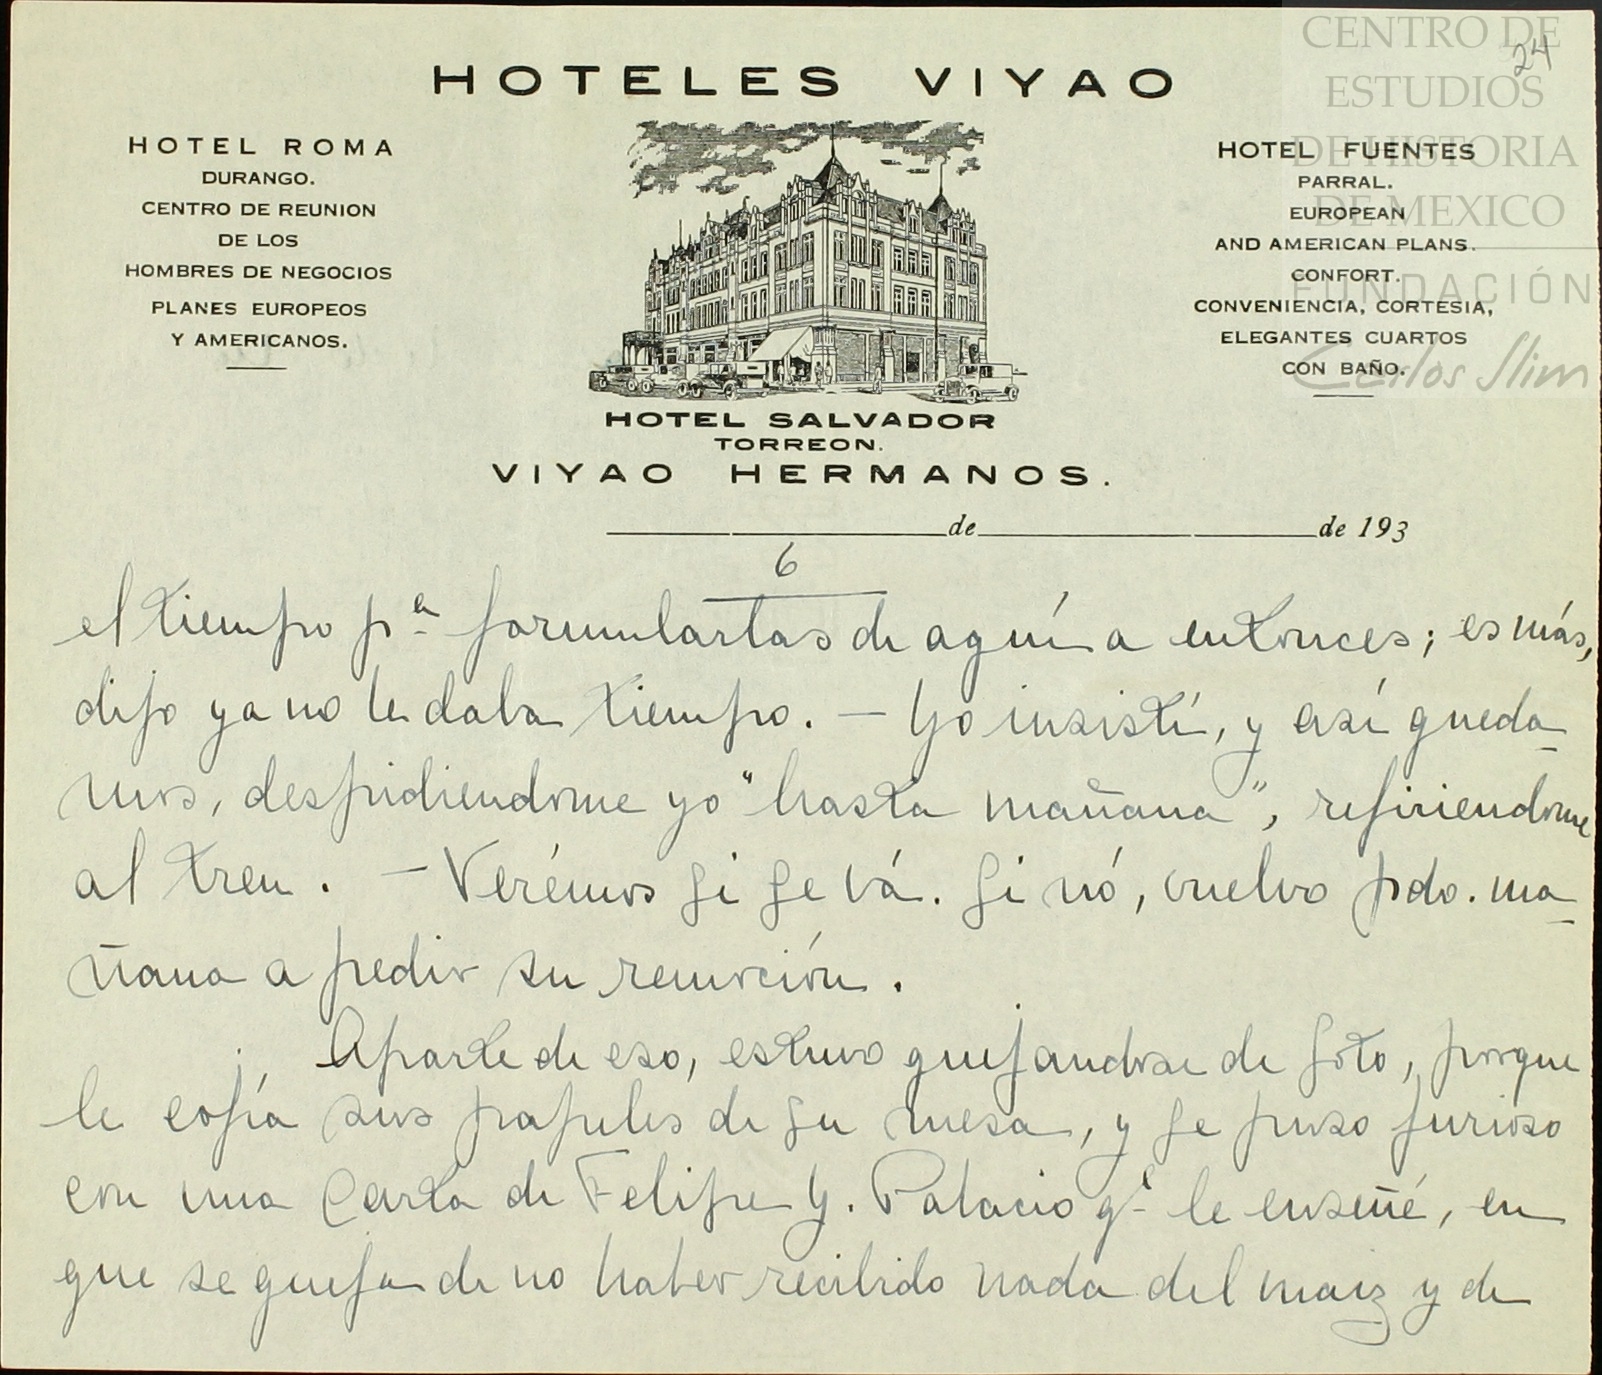 24
CENTRO DE
ESTUDIOS
DE HISTORIA
DE MEXICO
FUNDACIÓN
Carlos Slim
HOTELES VIYAO
HOTEL ROMA
DURANGO.
CENTRO DE REUNION
DE LOS
HOMBRES DE NEGOCIOS
PLANES EUROPEOS
Y AMERICANOS.
HOTEL FUENTES
PARRAL.
EUROPEAN
AND AMERICAN PLANS.
CONFORT.
CONVENIENCIA, CORTESIA,
ELEGANTES CUARTOS
CON BAÑO.
HOTEL SALVADOR
TORREON.
VIYAO HERMANOS.
de de 193
6
el tiempo pª formulartas de aquí a entonces; es más,
dijo ya no le daba tiempo. — Yo insistí, y así queda-
mos, despidiendome yo "hasta mañana", refiriendome
al tren. — Verémos si se vá. Si nó, vuelvo pdo. ma-
ñana a pedir su remoción.
Aparte de eso, estuvo quejandose de Soto, porque
le copía sus papeles de su mesa, y se puso furioso
con una Carta de Felipe Y. Palacio qᵉ le enseñé, en
que se queja de no haber recibido nada del maiz y de